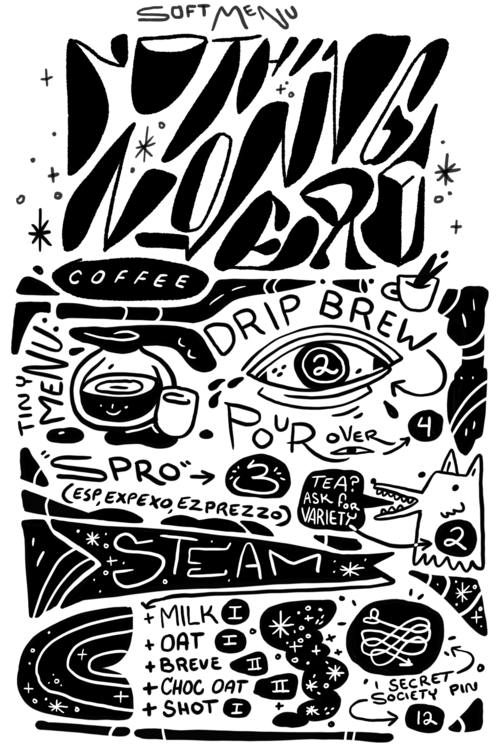 SOFT MENU
COFFEE
DRIP BREW
2
TINY
MENU
POUR OVER → 4
"SPRO" → 3
(ESP, EXPEXO, EZPREZZO)
TEA?
ASK FOR
VARIETY
2
STEAM
+ MILK I
+ OAT I
+ BREVE II
+ CHOC OAT II
+ SHOT I
1 SECRET
SOCIETY PIN
12